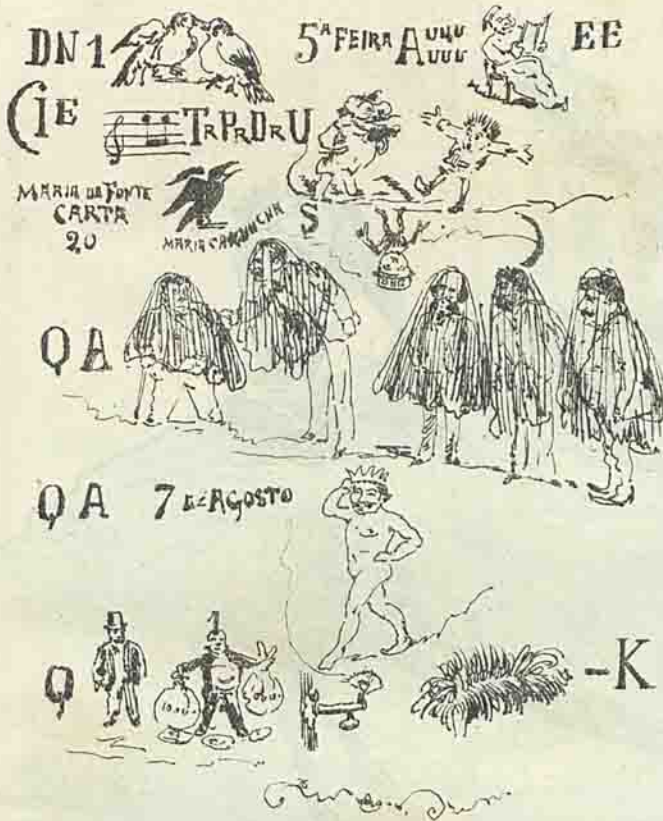 DN1 5ª FEIRA A EE
CIE TRPRDRU
MARIA DA FONTE
CARTA
20
MARIA CACHUCHA
S
QA
QA 7 DE AGOSTO
Q -K